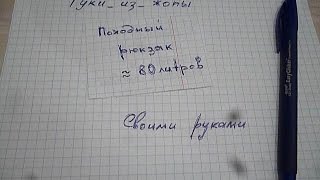 Руки_из_жопы
Походный
рюкзак
≈ 80 литров
Своими руками